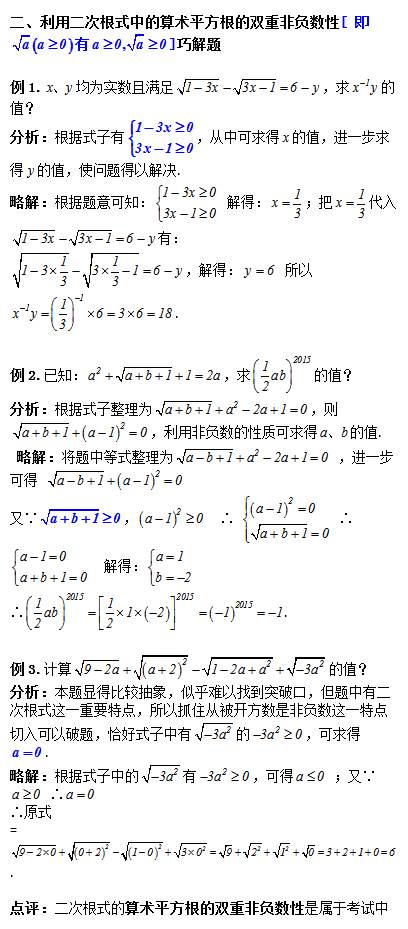 二、利用二次根式中的算术平方根的双重非负数性[ 即
√a(a≥0)有a≥0,√a≥0]巧解题
例1. x、y均为实数且满足√(1-3x)-√(3x-1)=6-y,求x⁻¹y的
值?
分析:根据式子有{1-3x≥0 3x-1≥0,从中可求得x的值,进一步求
得y的值,使问题得以解决.
略解:根据题意可知:{1-3x≥0 3x-1≥0 解得:x=1/3;把x=1/3代入
√(1-3x)-√(3x-1)=6-y有:
√(1-3×1/3)-√(3×1/3-1)=6-y,解得:y=6 所以
x⁻¹y=(1/3)⁻¹×6=3×6=18.
例2.已知:a²+√(a+b+1)+1=2a,求(1/2ab)²⁰¹⁵的值?
分析:根据式子整理为√(a+b+1)+a²-2a+1=0,则
√(a+b+1)+(a-1)²=0,利用非负数的性质可求得a、b的值.
略解:将题中等式整理为√(a-b+1)+a²-2a+1=0 ,进一步
可得 √(a-b+1)+(a-1)²=0
又∵√(a+b+1)≥0,(a-1)²≥0 ∴ {(a-1)²=0 √(a+b+1)=0 ∴
{a-1=0 a+b+1=0 解得:{a=1 b=-2
∴(1/2ab)²⁰¹⁵=[1/2×1×(-2)]²⁰¹⁵=(-1)²⁰¹⁵=-1.
例3.计算√(9-2a)+√((a+2)²)-√(1-2a+a²)+√(-3a²)的值?
分析:本题显得比较抽象,似乎难以找到突破口,但题中有二
次根式这一重要特点,所以抓住从被开方数是非负数这一特点
切入可以破题,恰好式子中有√(-3a²)的-3a²≥0,可求得
a=0.
略解:根据式子中的√(-3a²)有-3a²≥0,可得a≤0 ;又∵
a≥0 ∴a=0
∴原式
=
√(9-2×0)+√((0+2)²)-√((1-0)²)+√(3×0²)=√9+√2²+√1²+√0=3+2+1+0=6
.
点评:二次根式的算术平方根的双重非负数性是属于考试中